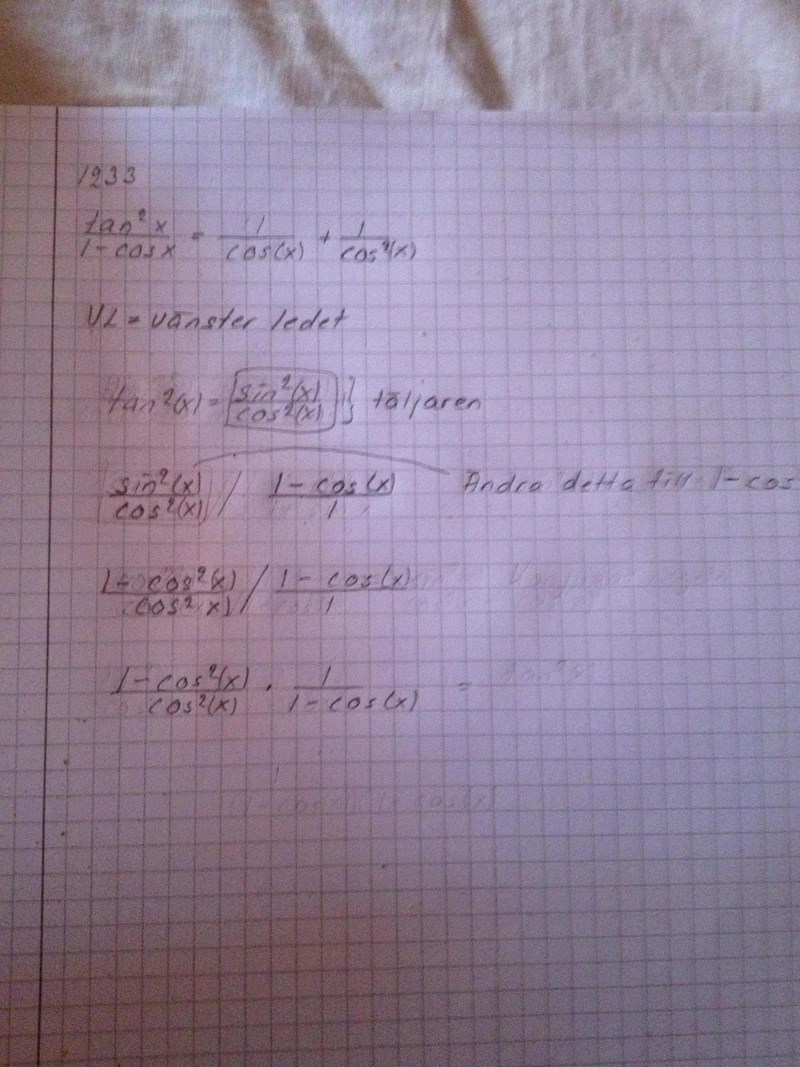 1233
tan²x / 1-cosx = 1 / cos(x) + 1 / cos²(x)
VL = vänster ledet
tan²(x) = sin²(x) / cos²(x) } täljaren
sin²(x) / cos²(x) / 1-cos(x) / 1 Ändra detta till 1-cos
1-cos²(x) / cos²x) / 1-cos(x) / 1
1-cos²(x) / cos²(x) · 1 / 1-cos(x) =